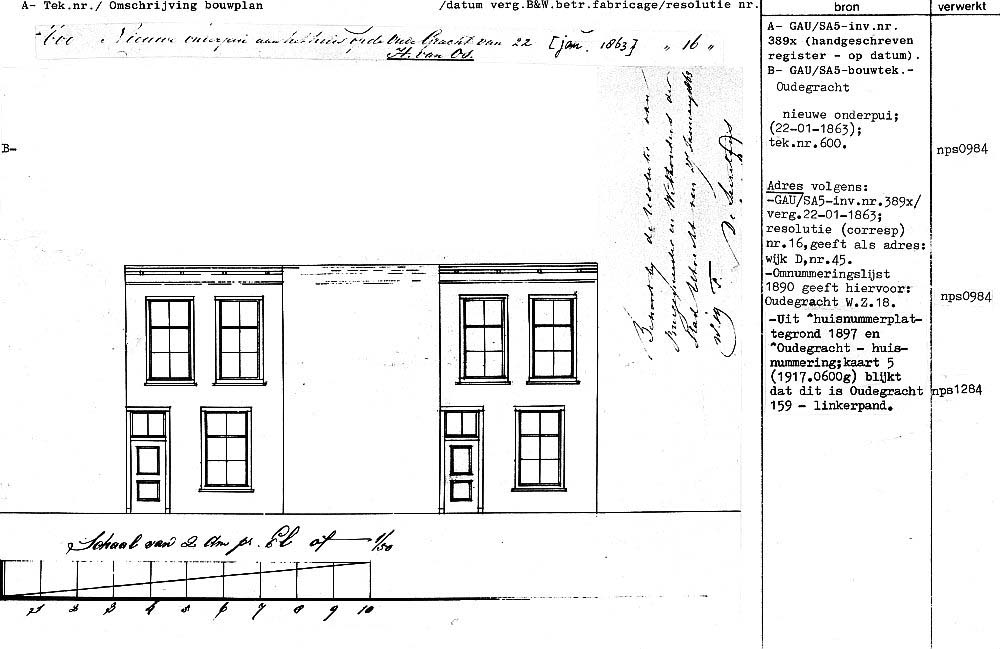 A- Tek.nr./ Omschrijving bouwplan /datum verg.B&W.betr.fabricage/resolutie nr. bron verwerkt
600 Nieuwe onderpui aan het huis o/de Oude Gracht van 22 [jan. 1863] " 16 "
H. van Os.
B-
Behoort bij de Resolutie van
Burgemeester en Wethouders der
Stad Utrecht van
De
Schaal van 2 dm pr. El of 1/50
1 2 3 4 5 6 7 8 9 10
A- GAU/SA5-inv.nr.
389x (handgeschreven
register - op datum).
B- GAU/SA5-bouwtek.-
Oudegracht
nieuwe onderpui;
(22-01-1863);
tek.nr.600.
nps0984
Adres volgens:
-GAU/SA5-inv.nr.389x/
verg.22-01-1863;
resolutie (corresp)
nr.16,geeft als adres:
wijk D,nr.45.
-Omnummeringslijst
1890 geeft hiervoor:
Oudegracht W.Z.18.
nps0984
-Uit "huisnummerplat-
tegrond 1897 en
"Oudegracht - huis-
nummering;kaart 5
(1917.0600g) blijkt
dat dit is Oudegracht
159 - linkerpand.
nps1284